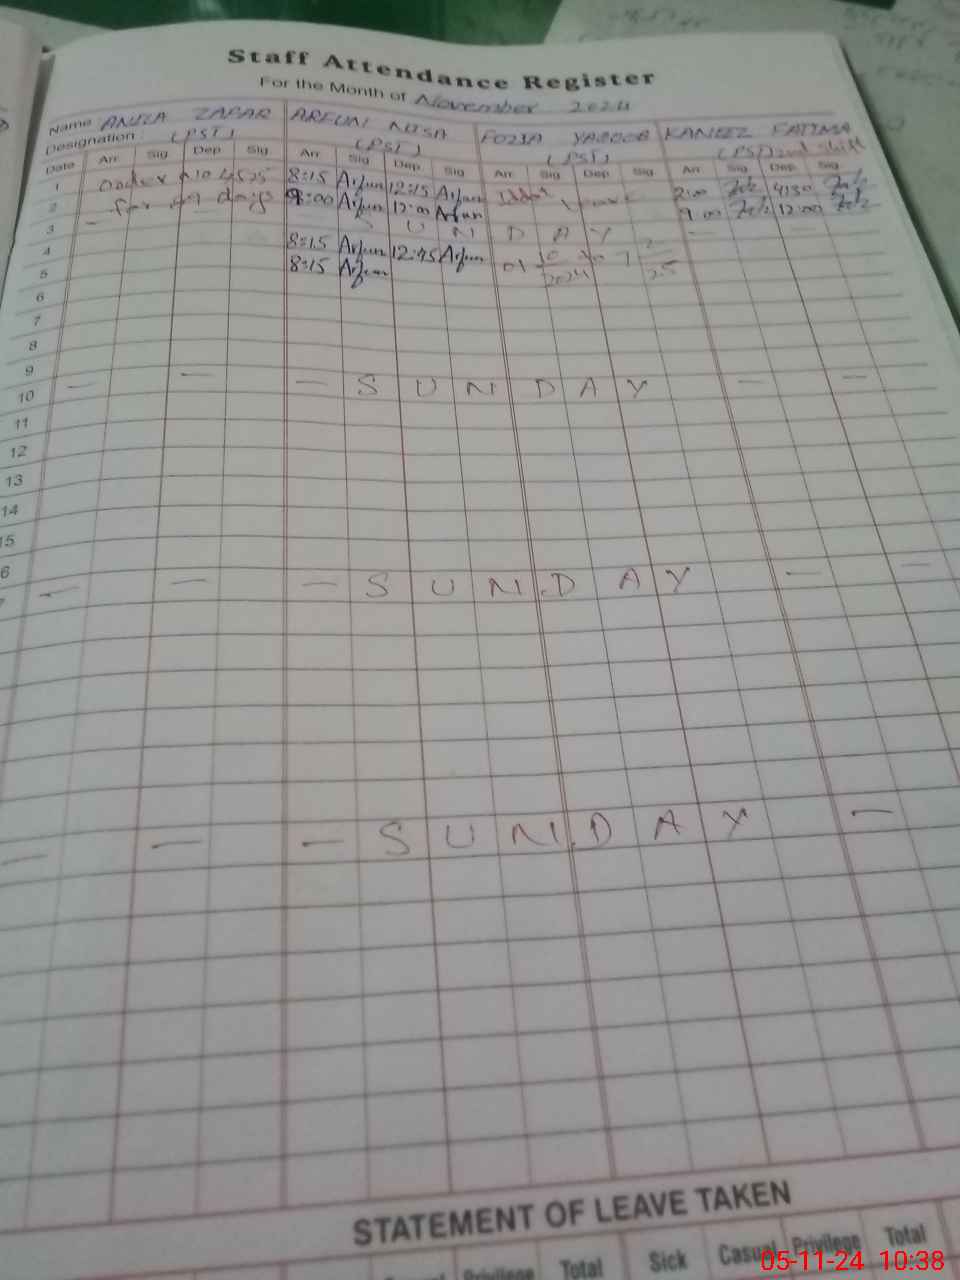 Staff Attendance Register
For the Month of November 2024
Name ANILA ZAFAR ARFUN NISA FOZIA YAQOOB KANEEZ FATIMA
Designation (PST) (PST) (PST) (PST) 2nd shift
Date Arr Sig Dep Sig Arr Sig Dep Sig Arr Sig Dep Sig Arr Sig Dep Sig
1 order 8:15 Arfun 12:15 Arfun Iddat Leave 2:00 4:30
2 for days 9:00 Arfun 12:00 Arfun 9:00 12:00
3 — S U N D A Y — —
4 8:15 Arfun 12:45 Arfun
5 8:15 Arfun
6
7
8
9
10 — — — S U N D A Y — —
11
12
13
14
15
6
7 — — — S U N D A Y — —
— — — S U N D A Y —
STATEMENT OF LEAVE TAKEN
Privilege Total Sick Casual Privilege Total
05-11-24 10:38